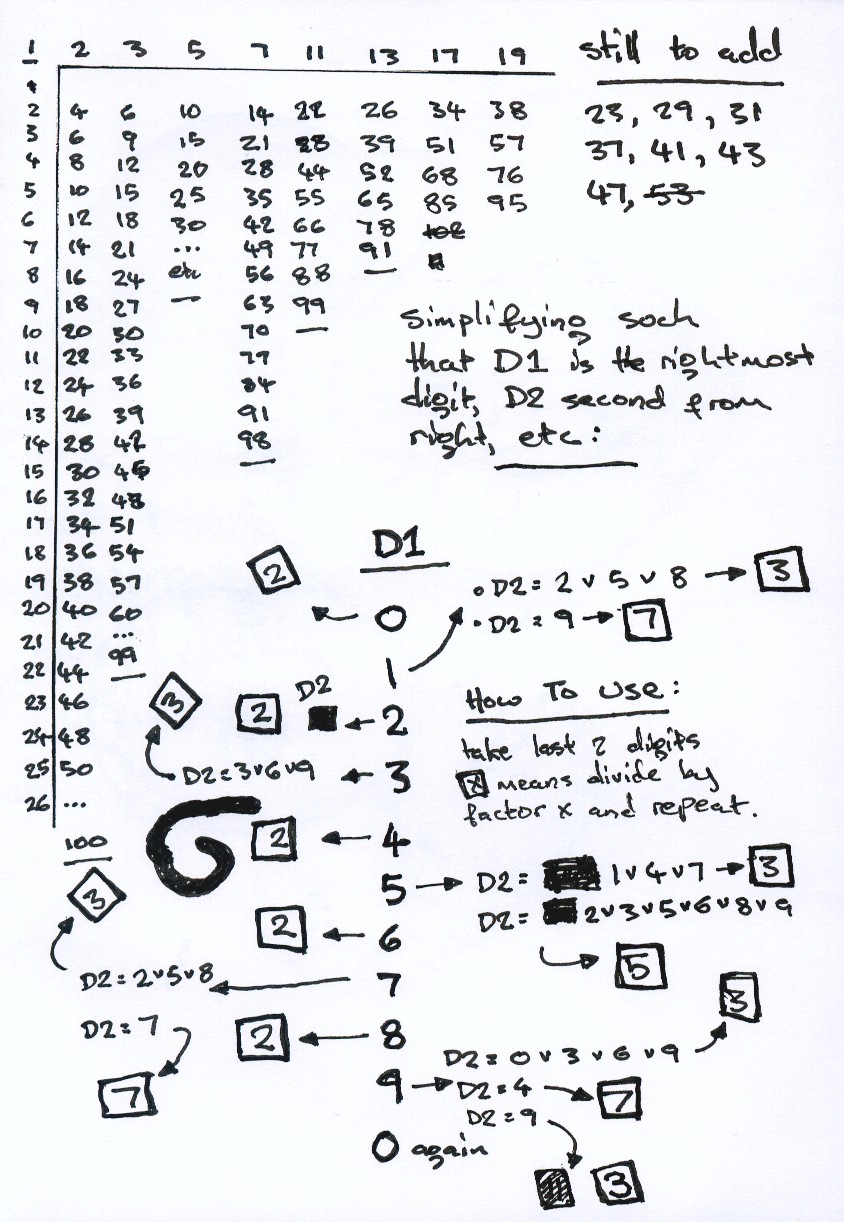 1 2 3 5 7 11 13 17 19 still to add
2 4 6 10 14 22 26 34 38 23, 29, 31
3 6 9 15 21 33 39 51 57 37, 41, 43
4 8 12 20 28 44 52 68 76
5 10 15 25 35 55 65 85 95 47, 53
6 12 18 30 42 66 78 102
7 14 21 ... 49 77 91
8 16 24 etc 56 88
9 18 27 63 99
10 20 30 70
11 22 33 77
12 24 36 84
13 26 39 91
14 28 42 98
15 30 45
16 32 48
17 34 51
18 36 54
19 38 57
20 40 60
21 42 ...
22 44 99
23 46
24 48
25 50
26 ...
100
Simplifying such
that D1 is the rightmost
digit, D2 second from
right, etc:
D1
2
0
1
• D2 = 2 v 5 v 8 → 3
• D2 = 9 → 7
How To Use:
take last 2 digits
x means divide by
factor x and repeat.
2 D2 ← 2
3
D2=3v6v9 ← 3
2 ← 4
5 → D2 = 1v4v7 → 3
D2 = 2v3v5v6v8v9
5
2 ← 6
3
D2=2v5v8 ← 7
D2=7
7
2 ← 8
9 → D2 = 0 v 3 v 6 v 9
3
D2=4 → 7
D2=9
3
0 again